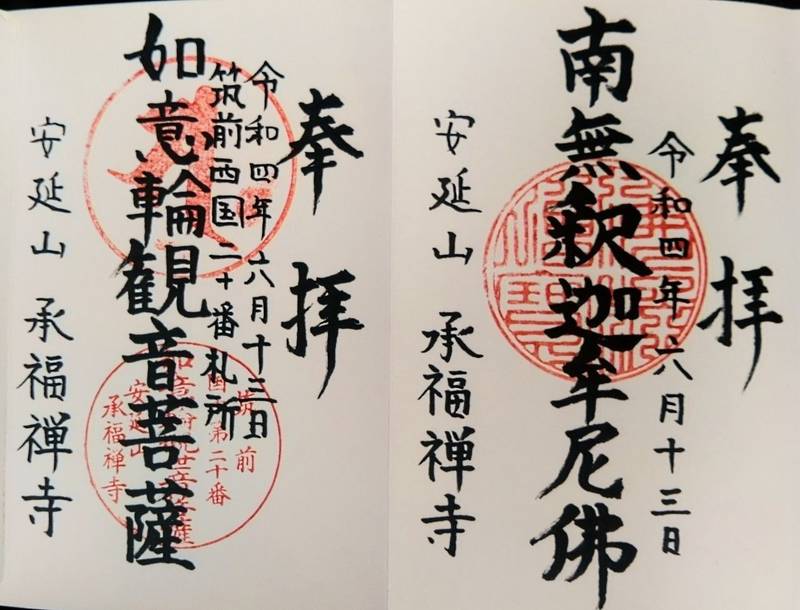 奉拝
令和四年六月十三日
南無釈迦牟尼佛
安延山 承福禅寺
奉拝
令和四年六月十三日
筑前西国二十番札所
如意輪観音菩薩
安延山 承福禅寺
筑前
国第二十番
安延山
承福禅寺